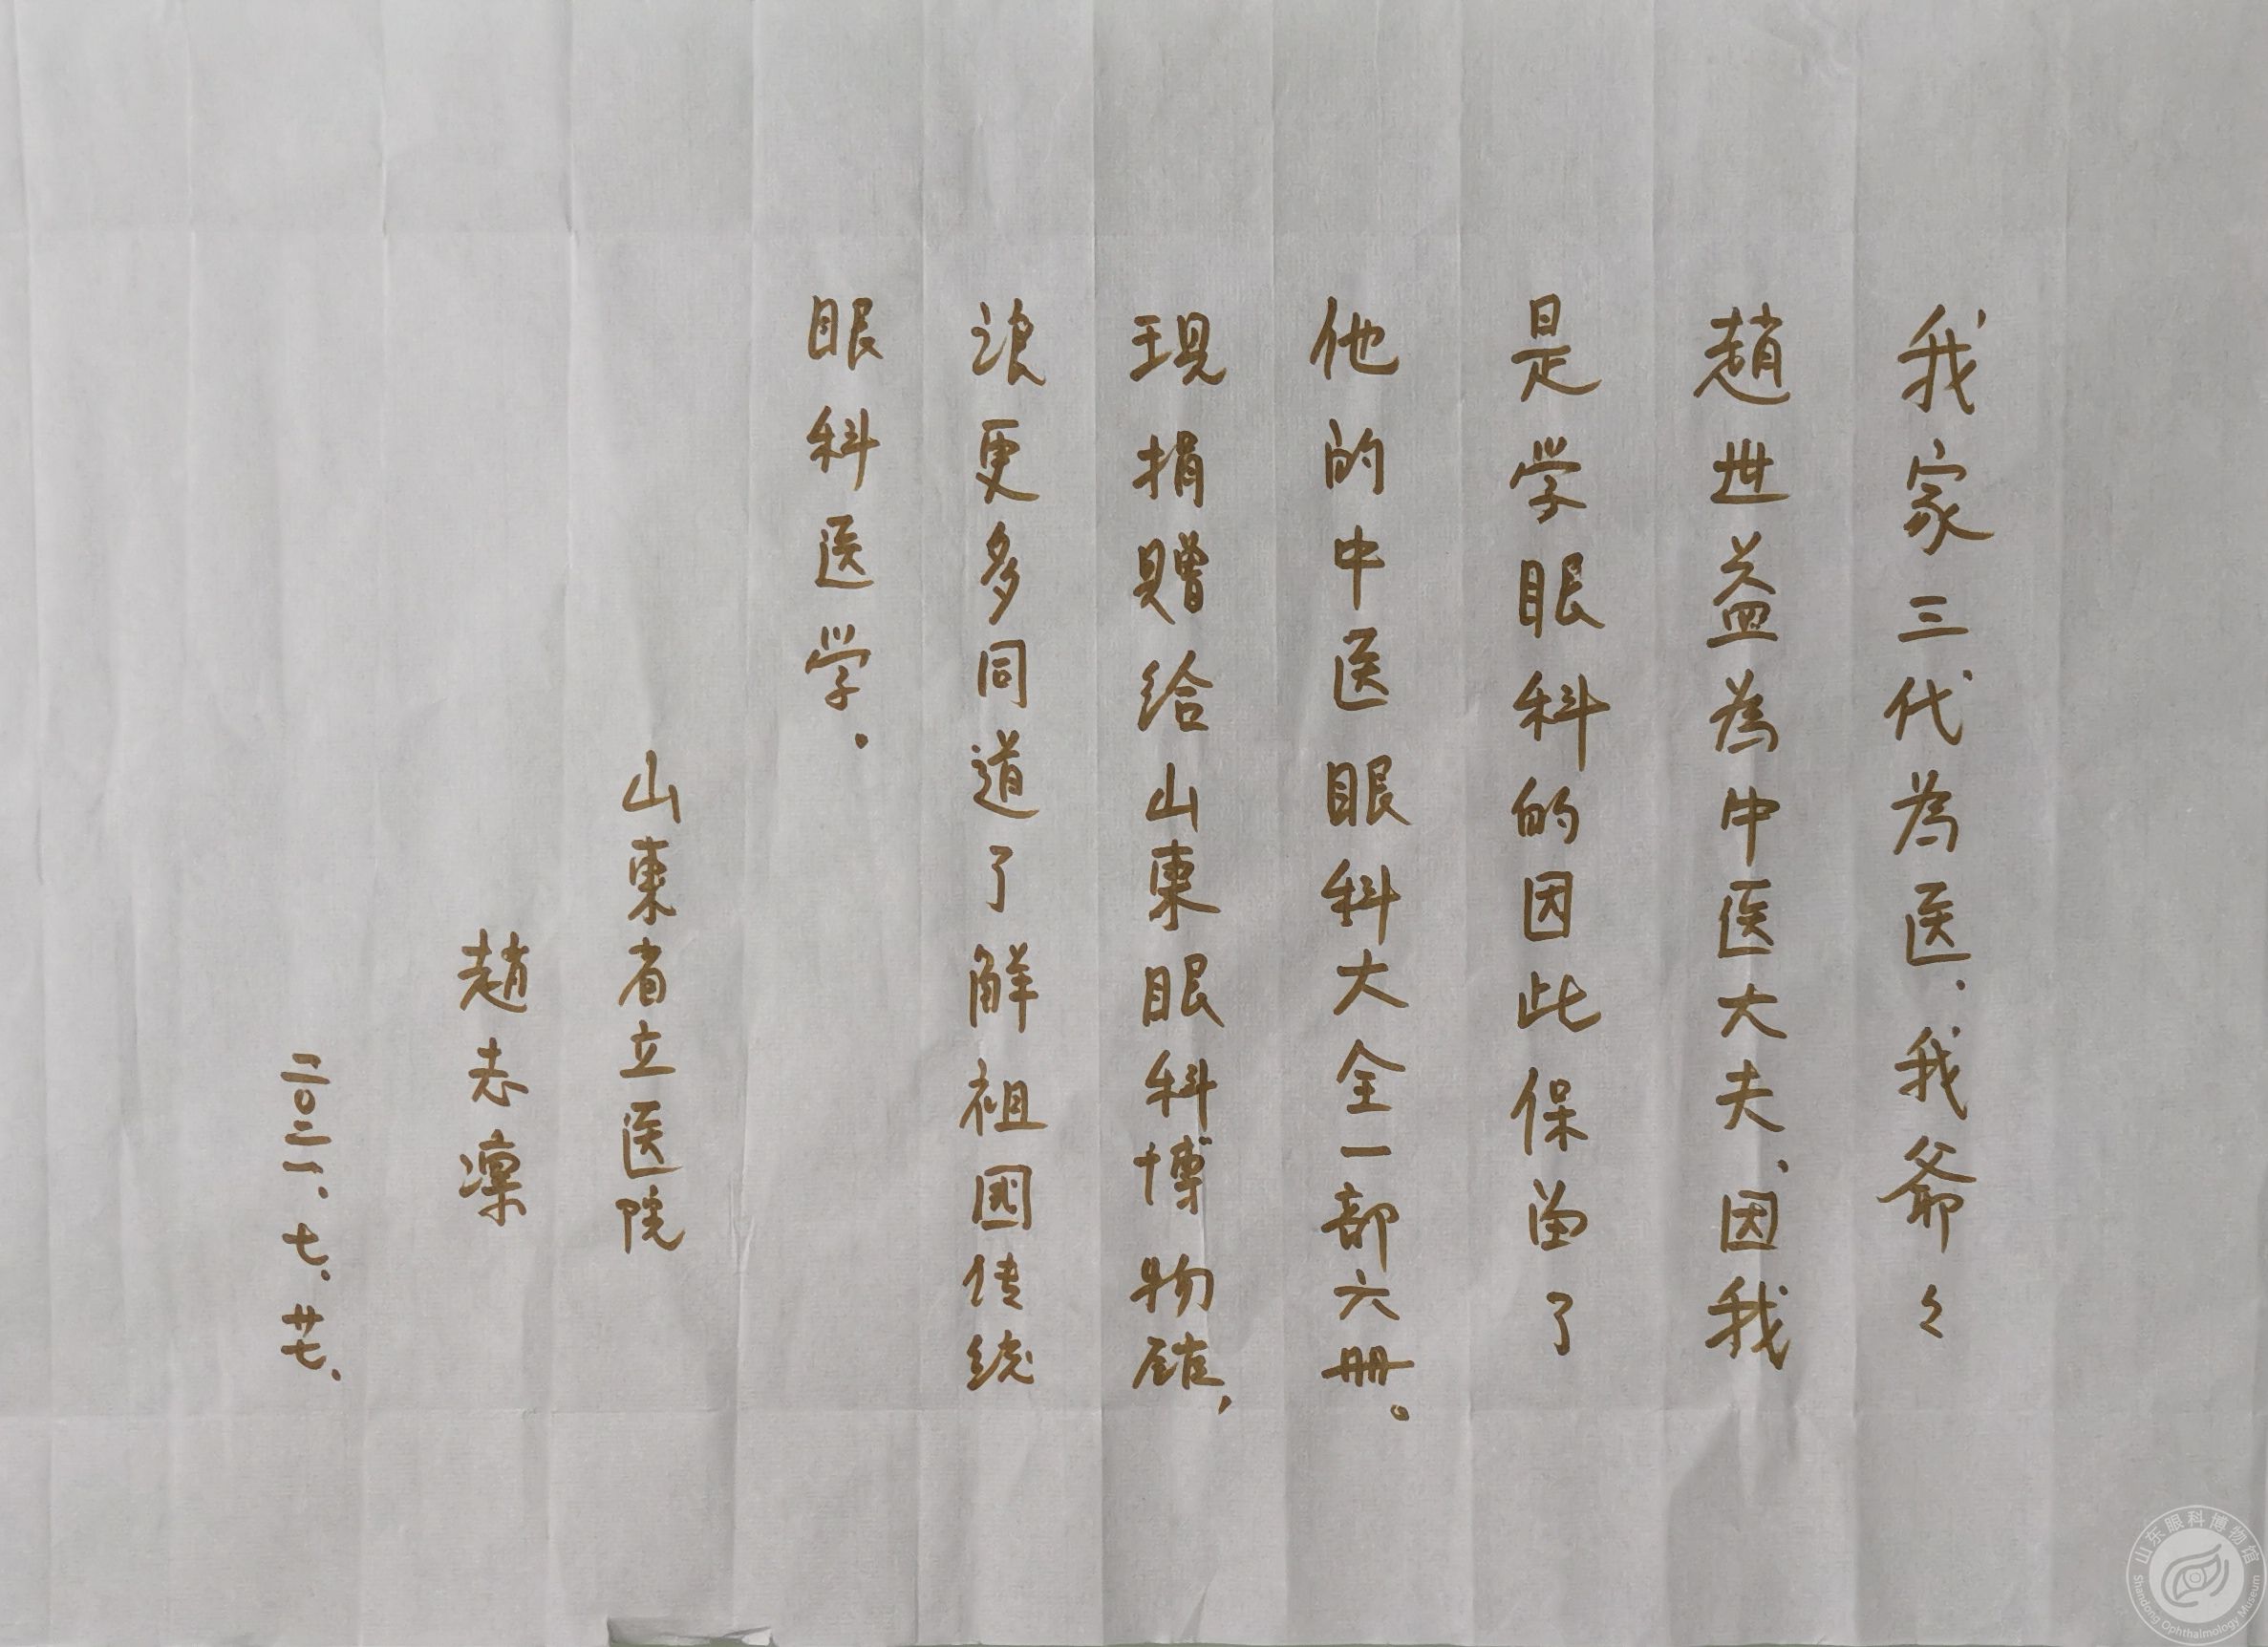 我家三代為医、我爺々
趙世益為中医大夫、因我
是学眼科的因此保留了
他的中医眼科大全一部六册。
现捐赠给山東眼科博物馆，
讓更多同道了解祖国传统
眼科医学.
山東省立医院
趙志凛
二〇二一、七、廿七、
山东眼科博物馆
Shandong Ophthalmology Museum